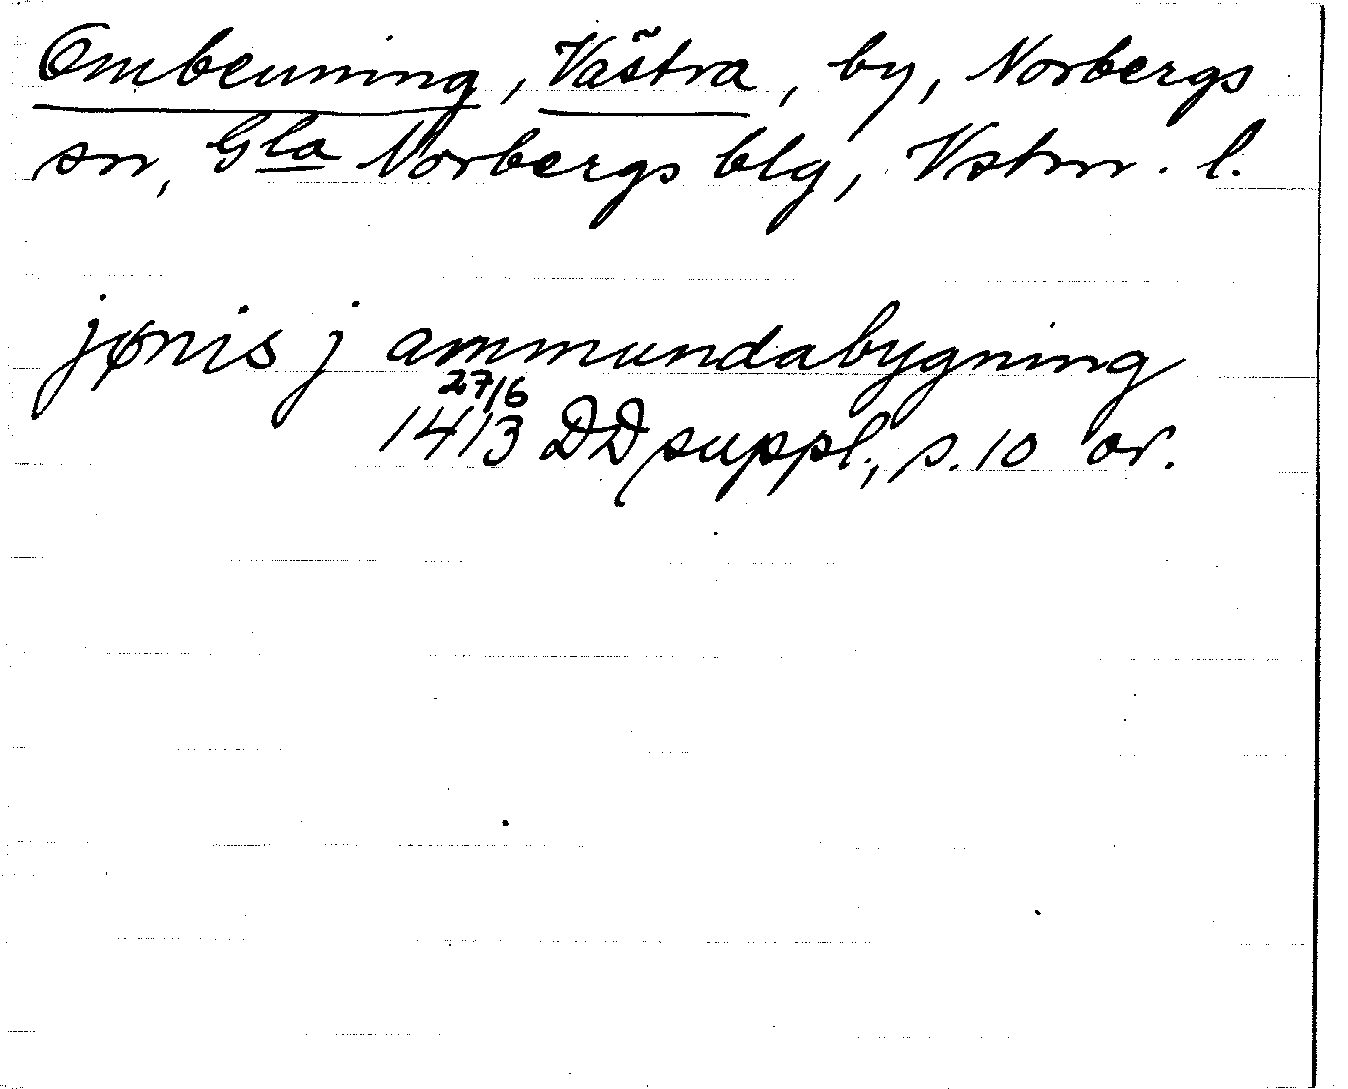 Ombenning, Västra, by, Norbergs
sn, Gla Norbergs blg, Vstm. l.
jønis j ammundabygning
27/6
1413 DD suppl., s. 10 or.